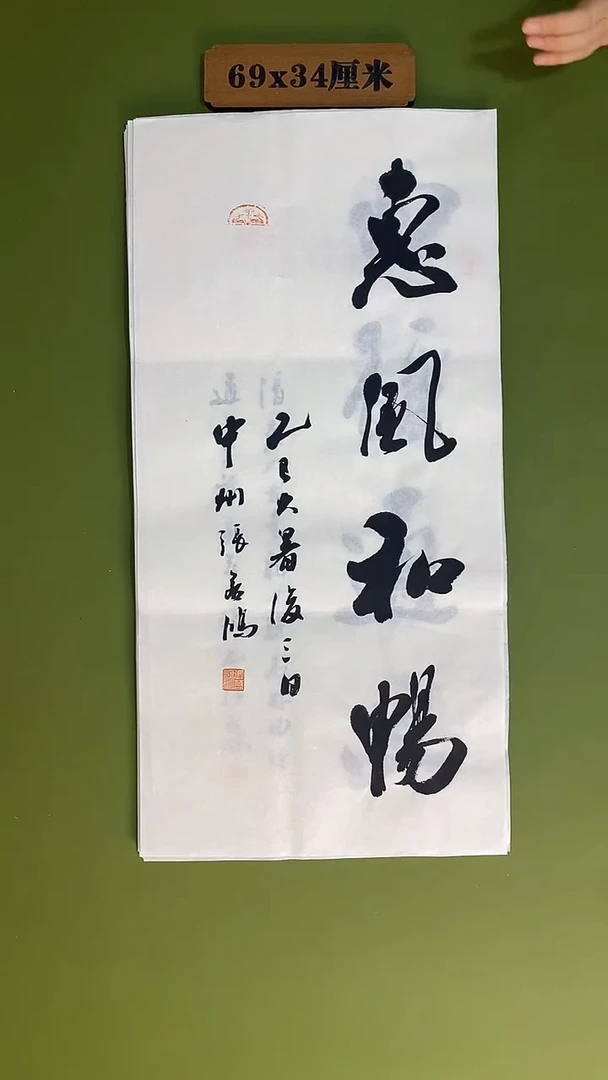 69x34厘米
惠风和畅
乙巳大暑後三日
中州張